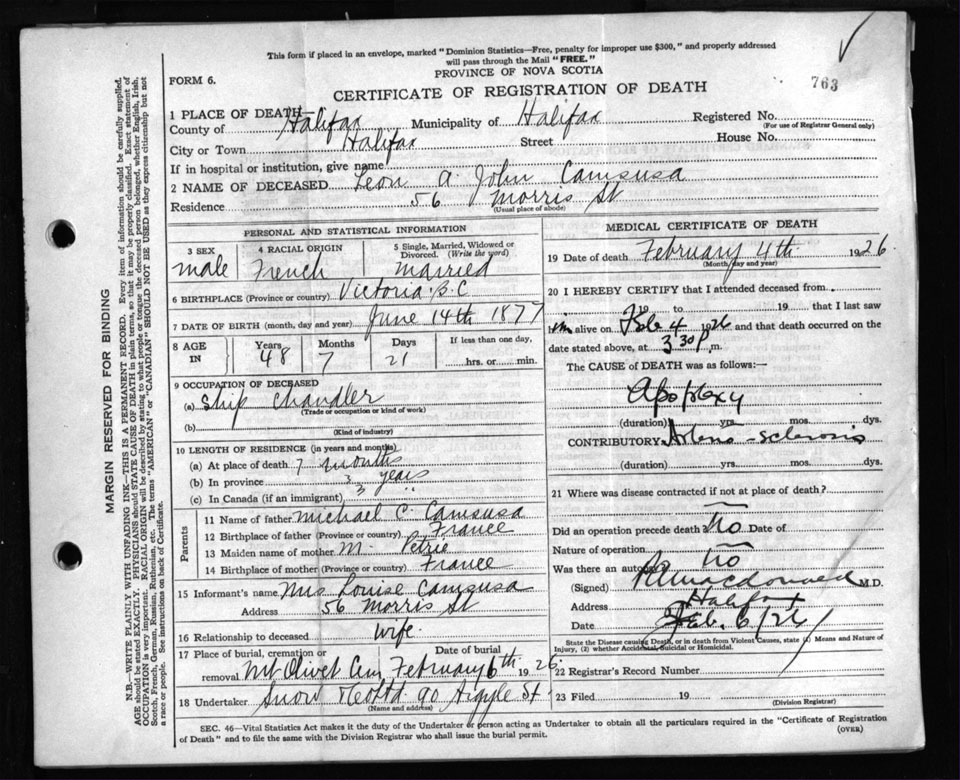 This form if placed in an envelope, marked "Dominion Statistics—Free, penalty for improper use $300," and properly addressed
will pass through the Mail "FREE."
PROVINCE OF NOVA SCOTIA
763
FORM 6.
CERTIFICATE OF REGISTRATION OF DEATH
1 PLACE OF DEATH
County of Halifax Municipality of Halifax Registered No.
(For use of Registrar General only)
City or Town Halifax Street House No.
If in hospital or institution, give name
2 NAME OF DECEASED Leon A. John Camsusa
Residence 56 Morris St
(Usual place of abode)
PERSONAL AND STATISTICAL INFORMATION
3 SEX 4 RACIAL ORIGIN 5 Single, Married, Widowed or
Divorced. (Write the word)
male French married
6 BIRTHPLACE (Province or country) Victoria B.C
7 DATE OF BIRTH (month, day and year) June 14th 1877
8 AGE IN Years 48 Months 7 Days 21 If less than one day,
hrs. or min.
9 OCCUPATION OF DECEASED
(a) Ship Chandler
(Trade or occupation or kind of work)
(b)
(Kind of industry)
10 LENGTH OF RESIDENCE (in years and months)
(a) At place of death 7 months
(b) In province 3 years
(c) In Canada (if an immigrant) 3 "
Parents
11 Name of father Michael C. Camsusa
12 Birthplace of father (Province or country) France
13 Maiden name of mother M. Petrie
14 Birthplace of mother (Province or country) France
15 Informant's name Mrs Louise Camsusa
Address 56 Morris St
16 Relationship to deceased wife
17 Place of burial, cremation or Date of burial
removal Mt Olivet Cem February 6th 1926.
18 Undertaker Snow & Co Ltd 90 Argyle St
(Name and address)
MEDICAL CERTIFICATE OF DEATH
19 Date of death February 4th 1926
(Month, day and year)
20 I HEREBY CERTIFY that I attended deceased from
to 19 that I last saw
him alive on Feb 4 1926 and that death occurred on the
date stated above, at 3.30 p.m.
The CAUSE of DEATH was as follows:—
Apoplexy
(duration) yrs. mos. dys.
CONTRIBUTORY Arterio-sclerosis
(duration) yrs. mos. dys.
21 Where was disease contracted if not at place of death?
Did an operation precede death no Date of
Nature of operation
Was there an autopsy no
(Signed) Macdonald M.D.
Address Halifax
Date Feb. 6/26
State the Disease causing Death, or in death from Violent Causes, state (1) Means and Nature of
Injury, (2) whether Accidental, Suicidal or Homicidal.
22 Registrar's Record Number
23 Filed 19
(Division Registrar)
SEC. 46—Vital Statistics Act makes it the duty of the Undertaker or person acting as Undertaker to obtain all the particulars required in the "Certificate of Registration
of Death" and to file the same with the Division Registrar who shall issue the burial permit.
(OVER)
MARGIN RESERVED FOR BINDING
N.B.—WRITE PLAINLY WITH UNFADING INK—THIS IS A PERMANENT RECORD. Every item of information should be carefully supplied.
AGE should be stated EXACTLY. PHYSICIANS should STATE CAUSE OF DEATH in plain terms, so that it may be properly classified. Exact statement of
OCCUPATION is very important. RACIAL ORIGIN will be described by stating to what people or tongue the deceased person belonged, whether English, Irish,
Scotch, French, German, Russian, Ruthenian, etc. The terms "AMERICAN" or "CANADIAN" SHOULD NOT BE USED as they express citizenship but not
a race or people. See instructions on back of Certificate.